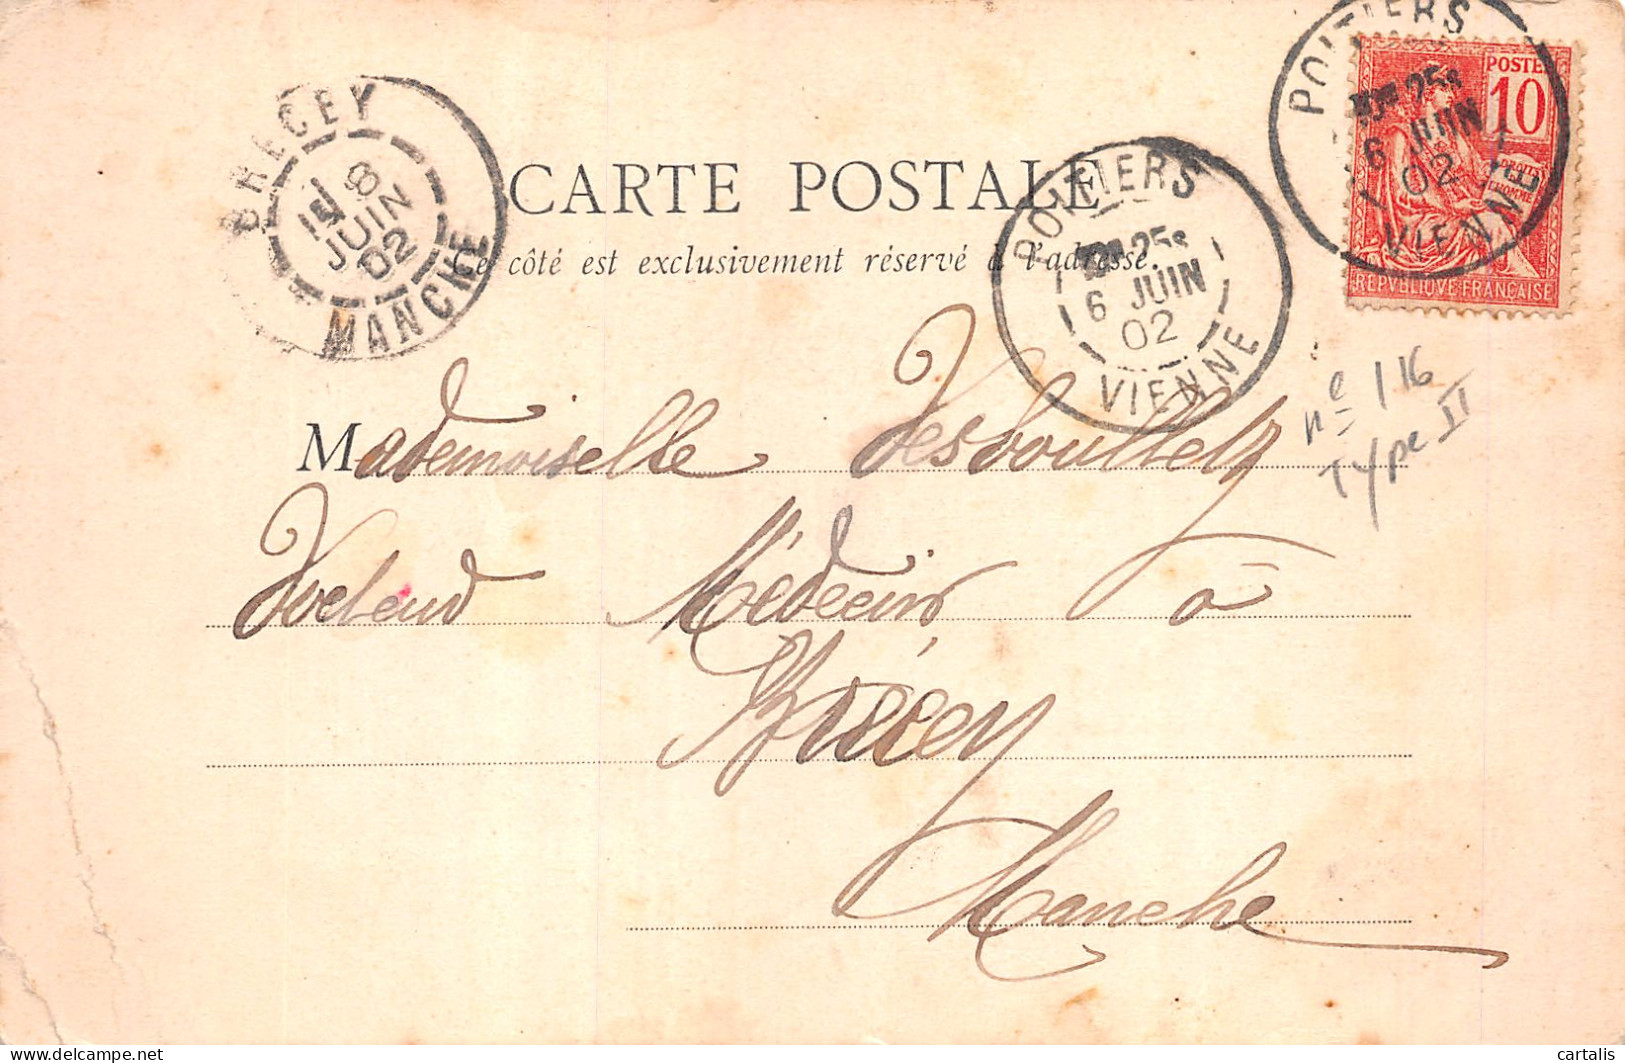 CARTE POSTALE
Ce côté est exclusivement réservé à l'adresse.
BRECEY
8
JUIN
02
MANCHE
POITIERS
25s
6 JUIN
02
VIENNE
POITIERS
25s
6 JUIN
02
VIENNE
POSTES
10
DROITS
DE
L'HOMME
REPVBLIQVE FRANÇAISE
n° 116
Type II
Mademoiselle
Médecin à
Brécey
Manche
cartalis